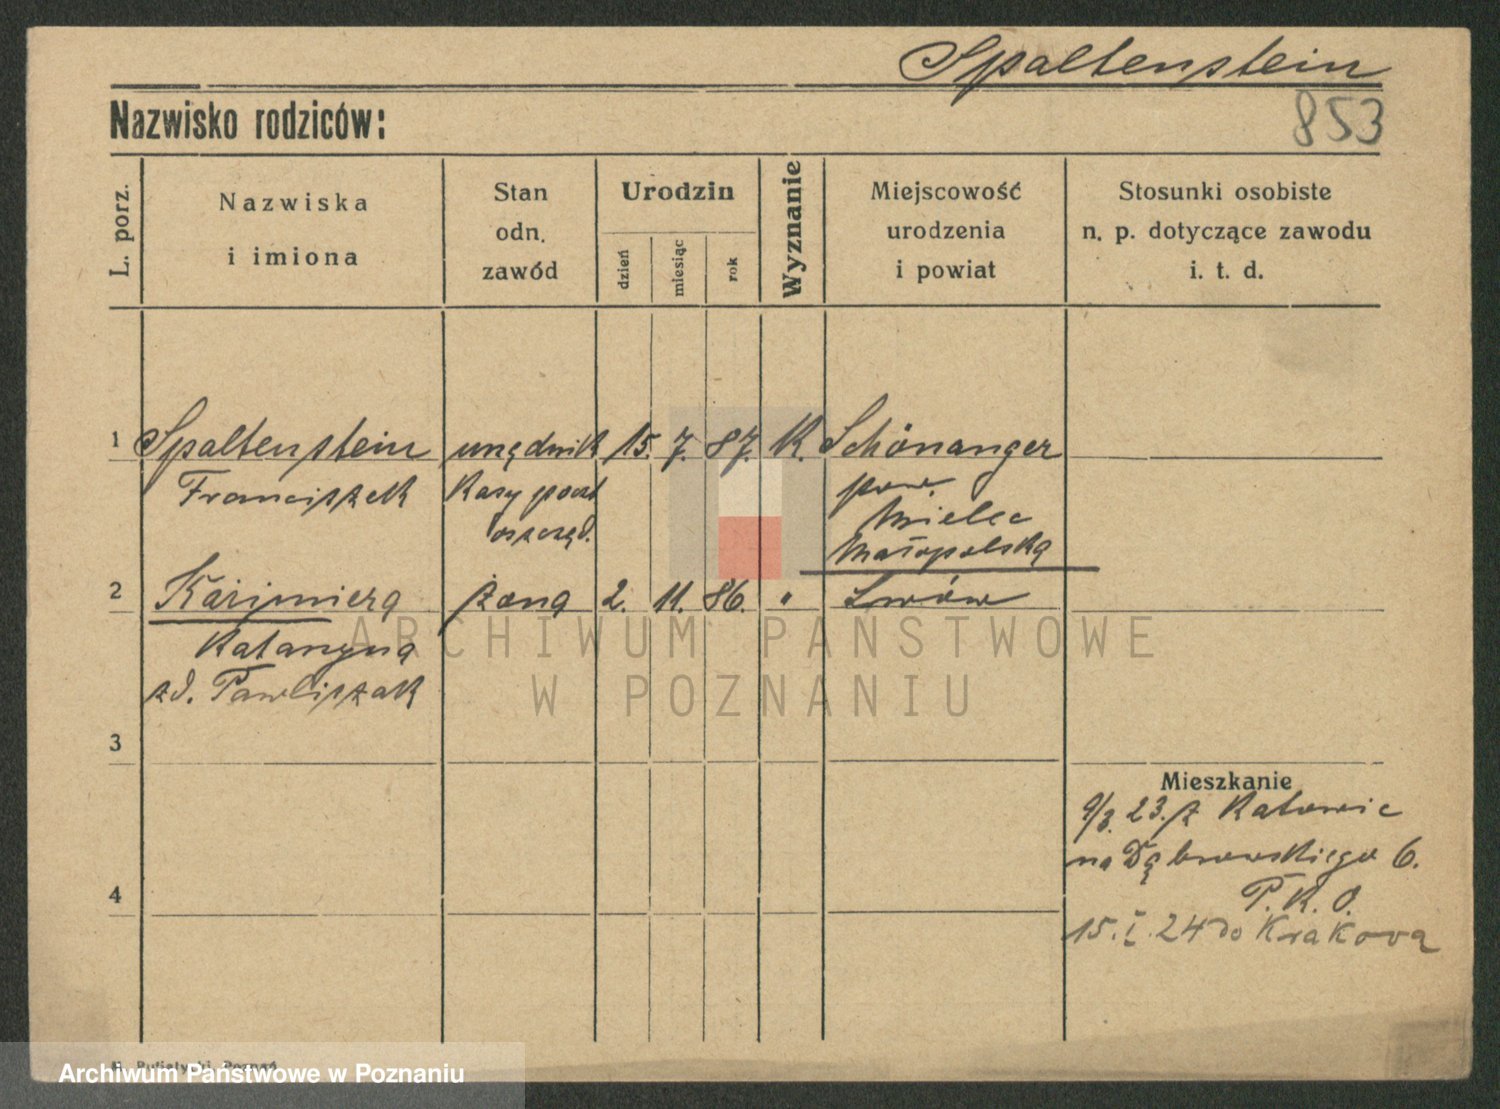 Spaltenstein
853
Nazwisko rodziców:
L. porz.
Nazwiska
i imiona
Stan
odn.
zawód
Urodzin
dzień
miesiąc
rok
Wyznanie
Miejscowość
urodzenia
i powiat
Stosunki osobiste
n. p. dotyczące zawodu
i. t. d.
1 Spaltenstein urzędnik 15. 7. 87. K. Schönanger
Franciszek Kasy poczt pow.
oszczęd. Mielec
Małopolska
2 Kazimiera żona 2. 11. 86. " Lwów
Katarzyna
zd. Pawliszak
ARCHIWUM PAŃSTWOWE
W POZNANIU
3
Mieszkanie
9/3. 23. z Katowic
na Dąbrowskiego 6.
P. K. O.
4
15. I. 24 do Krakowa
Poznań
Archiwum Państwowe w Poznaniu